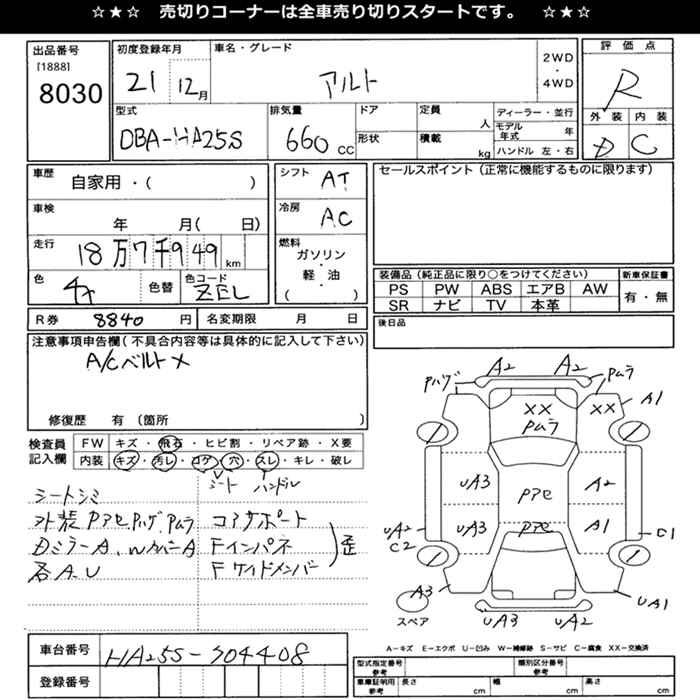 ☆★☆ 売切りコーナーは全車売り切りスタートです。 ☆★☆
出品番号 初度登録年月 車名・グレード 評価点
[1888]
8030 21 12月 アルト 2WD・4WD R
外装 内装
D C
型式 排気量 ドア 定員 人 ディーラー・並行
DBA-HA25S 660CC 形状 積載 kg モデル年式 年
ハンドル 左・右
車歴 自家用・( )
シフト AT
セールスポイント(正常に機能するものに限ります)
車検 年 月( 日)
冷房 AC
走行 18万7千949km
燃料 ガソリン・軽油( )
色 色替 色コード ZEL
装備品(純正品に限り○をつけてください) 新車保証書
PS PW ABS エアB AW 有・無
SR ナビ TV 本革
R券 8840円 名変期限 月 日
後日品
注意事項申告欄(不具合内容等は具体的に記入して下さい)
A/Cベルト×
修復歴 有(箇所 )
検査員記入欄 FW キズ・飛石・ヒビ割・リペア跡・X要
内装 キズ・汚レ・コゲ・穴・スレ・キレ・破レ
シート ハンドル
シートシミ
外装Pアセ,Pハゲ,Pムラ コアサポート
Dミラー A, WカバーA Fインパネ 歪
各A.U Fサイドメンバー
A2 A2
Pハゲ Pムラ
XX XX A1
Pムラ
UA3 Pアセ A2
UA3 Pアセ A1
UA2 C1
C2
A3 UA1
スペア UA3 UA2
A-キズ E-エクボ U-凹み W-補修跡 S-サビ C-腐食 XX-交換済
車台番号 HA25S-304408
登録番号
型式指定番号 参考 類別区分番号 参考
車庫証明用 参考 長さ cm 幅 cm 高さ cm